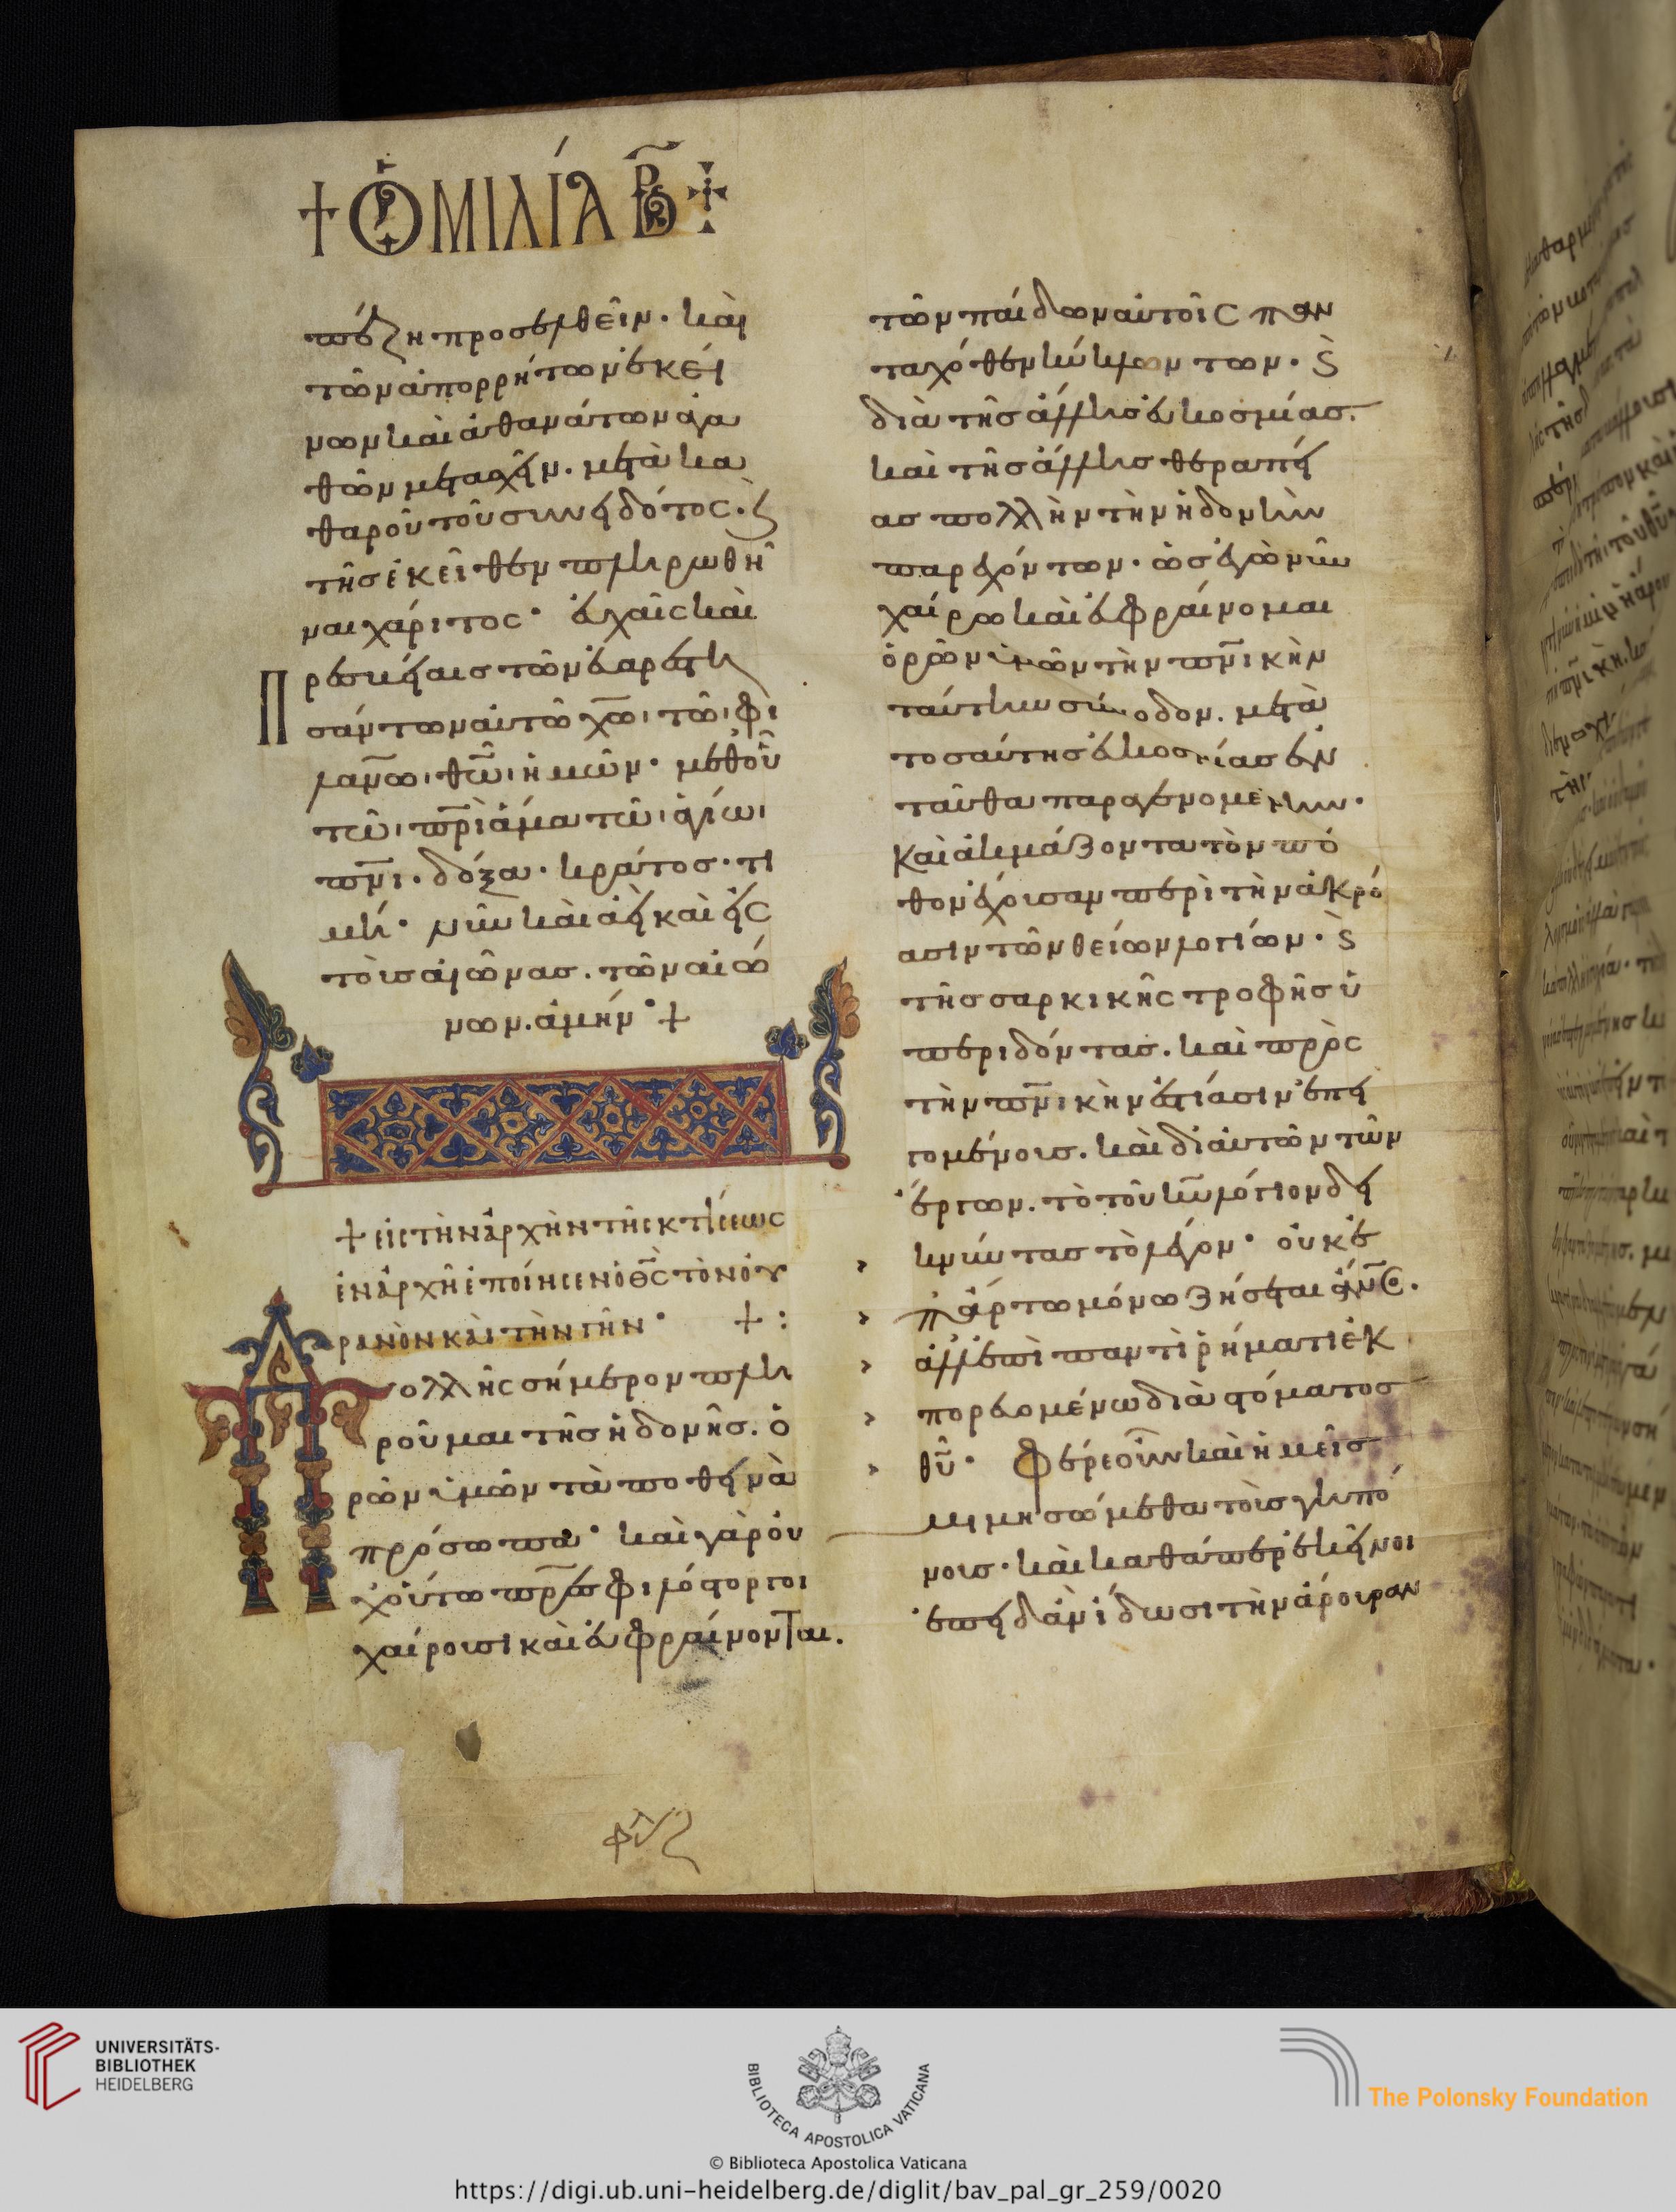 + ὉΜΙΛΊΑ Β̅ +
πέζη προσελθεῖν. καὶ
τῶν ἀπορρήτων ἐκεί
νων καὶ ἀθανάτων ἀγα
θῶν μετασχεῖν. μετὰ κα
θαροῦ τοῦ συνειδότος. ϗ̀
τῆς ἐκεῖθεν πληρωθῆ
ναι χάριτος· εὐχαῖς καὶ
Πρεσβείαις τῶν εὐαρεστη
σάντων αὐτῶ χ̅ω̅ τῶ φι
λαν̅ω θ̅ω̅ ἡμῶν· μεθοῦ
τῶ π̅ρ̅ὶ ἅμα τῶ ἁγίω
π̅ν̅ι. δόξα. κράτος. τι
μή. νῦν καὶ ἀεὶ καὶ εἰς
τοὺς αἰῶνας. τῶν αἰώ
νων. ἀμήν· +
+ εἰς τὴν ἀρχὴν τῆς κτίσεως
ἐν ἀρχῆ ἐποίησεν ὁ θ̅ς̅ τὸν οὐ
ρανὸν καὶ τὴν γῆν· + :
Πολλῆς σήμερον πλη
ροῦμαι τῆς ἡδονῆς. ὁ
ρῶν ὑμῶν τὰ ποθεινὰ
πρόσωπα· καὶ γὰρ οὐ
χ οὕτω π̅ρ̅ε̅ς̅ φιλόστοργοι
χαίρουσι καὶ εὐφραίνονται.
τῶν παίδων αὐτοῖς παν
ταχόθεν κύκλωντων. ϗ̀
διὰ τῆς ἄλλης εὐκοσμίας.
καὶ τῆς ἄλλης θεραπεί
ας πολλὴν τὴν ἡδονὴν
παρεχόντων. ὡς ἐγὼ νῦν
χαίρω καὶ εὐφραίνομαι
ὁρῶν ὑμῶν τὴν π̅ν̅ικὴν
ταύτην σύνοδον. μετὰ
τοσαύτης εὐκοσμίας ἐν
ταῦθα παραγενομένην.
καὶ ἀκμάζοντα τὸν πό
θον ἔχουσαν περὶ τὴν ἀκρό
ασιν τῶν θείων λογίων. ϗ̀
τῆς σαρκικῆς τροφῆς ὑ
περιδόντας. καὶ πρὸς
τὴν π̅ν̅ικὴν ἑστίασιν ἐπει
γομένους. καὶ δι αὐτῶν τῶν
ἔργων. τὸ τοῦ κ̅υ̅ λόγιον δει
κνύντας τὸ λέγον· οὐκ ἐ
π ἄρτω μόνω ζήσεται ἄν̅ο̅ς̅.
ἀλλ ἐπὶ παντὶ ῥήματι ἐκ
πορευομένω διὰ στόματος
θ̅υ̅· φέρε οὖν καὶ ἡμεῖς
μιμησώμεθα τοὺς γηπό
νους. καὶ καθάπερ ἐκεῖνοι
ἐπειδὰν ἴδωσι τὴν ἄρουραν
UNIVERSITÄTS-
BIBLIOTHEK
HEIDELBERG
BIBLIOTECA APOSTOLICA VATICANA
The Polonsky Foundation
© Biblioteca Apostolica Vaticana
https://digi.ub.uni-heidelberg.de/diglit/bav_pal_gr_259/0020